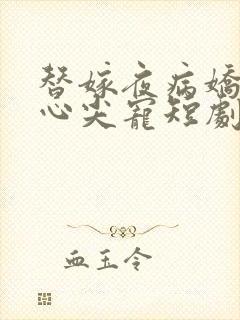 替嫁夜病嬌
心尖寵短劇
血玉令